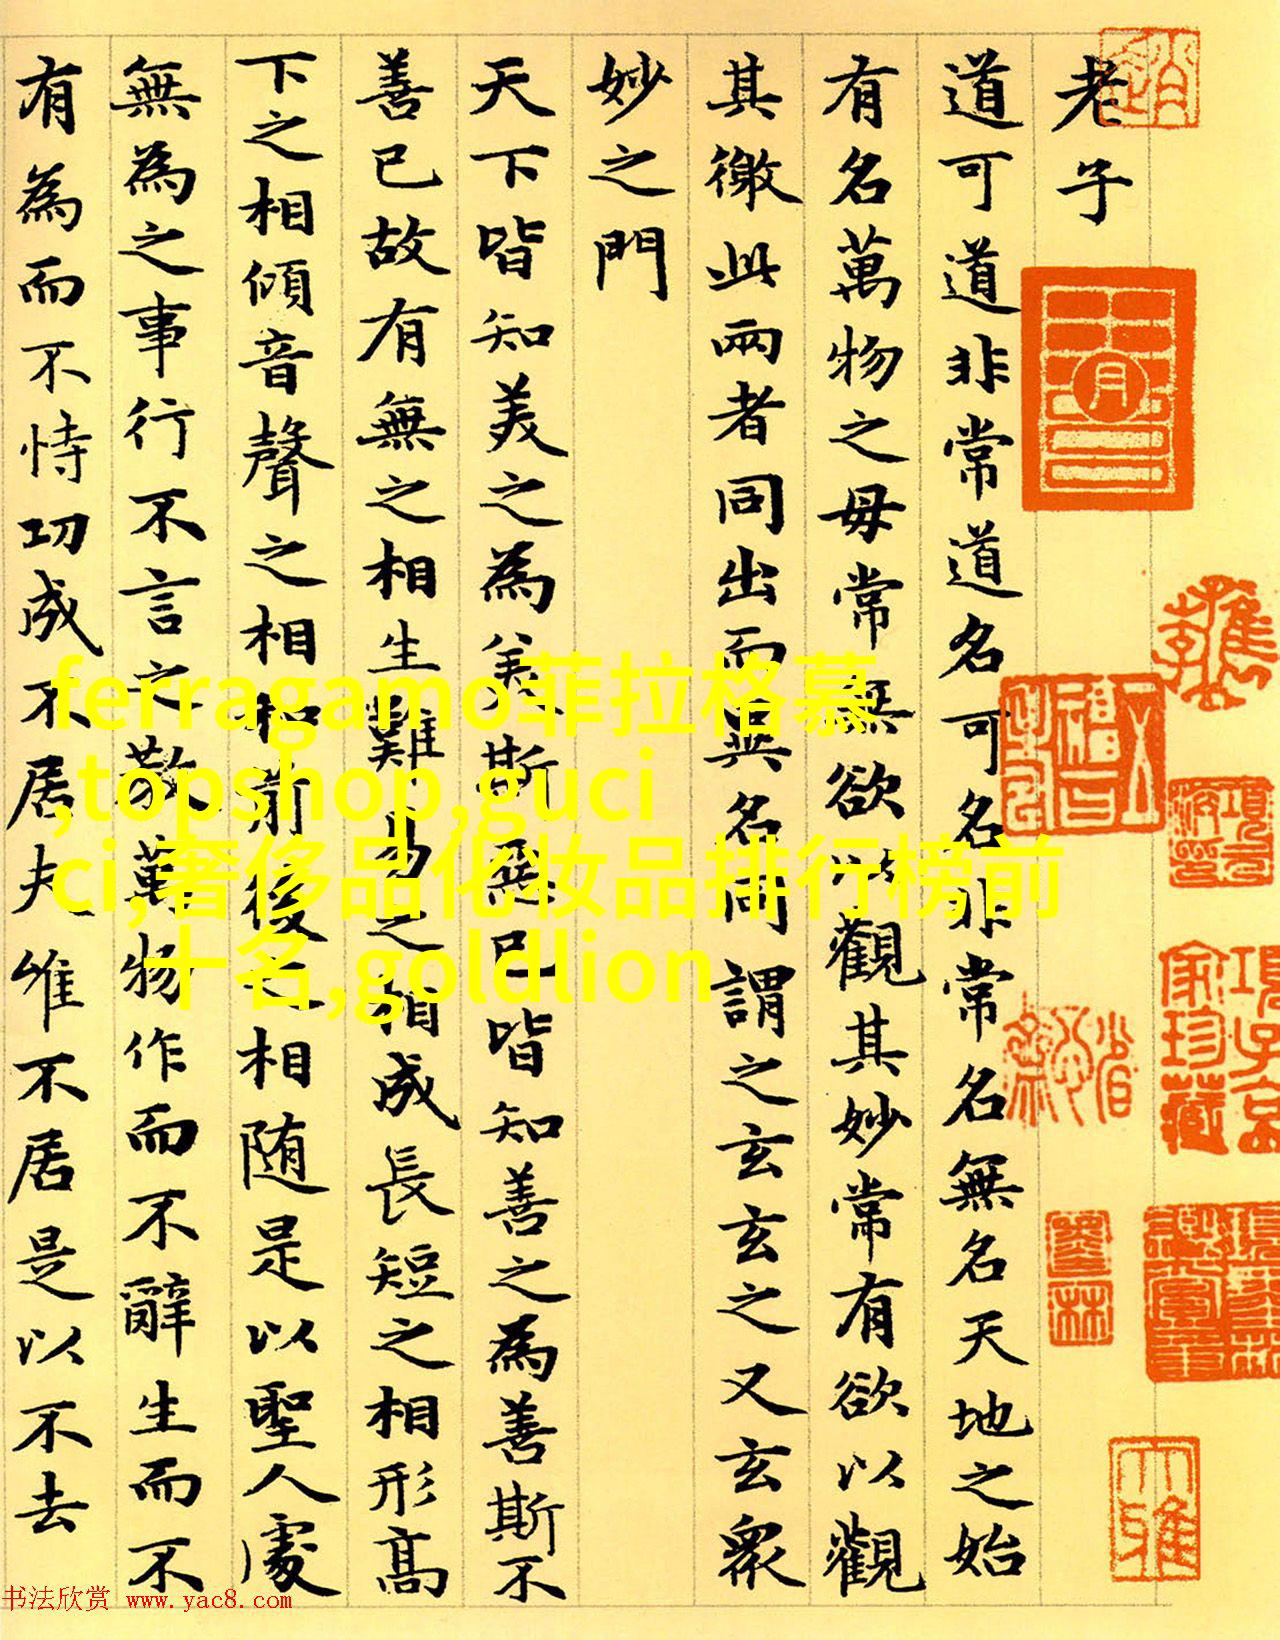 老子
道可道非常道名可名非常名無名天地之始
有名萬物之母常無欲以觀其妙常有欲以觀
其徼此兩者同出而異名同謂之玄玄之又玄衆
妙之門
天下皆知美之為美斯惡已皆知善之為善斯不
善已故有無之相生難易之相成長短之相形高
下之相傾音聲之相和前後之相随是以聖人處
無為之事行不言之教萬物作而不辭生而不
有為而不恃功成不居夫唯不居是以不去
ferragamo菲拉格慕
,topshop,guci
ci,奢侈品化妆品排行榜前
十名,goldlion
項子京
家珍藏
大雅
书法欣赏 www.yac8.com